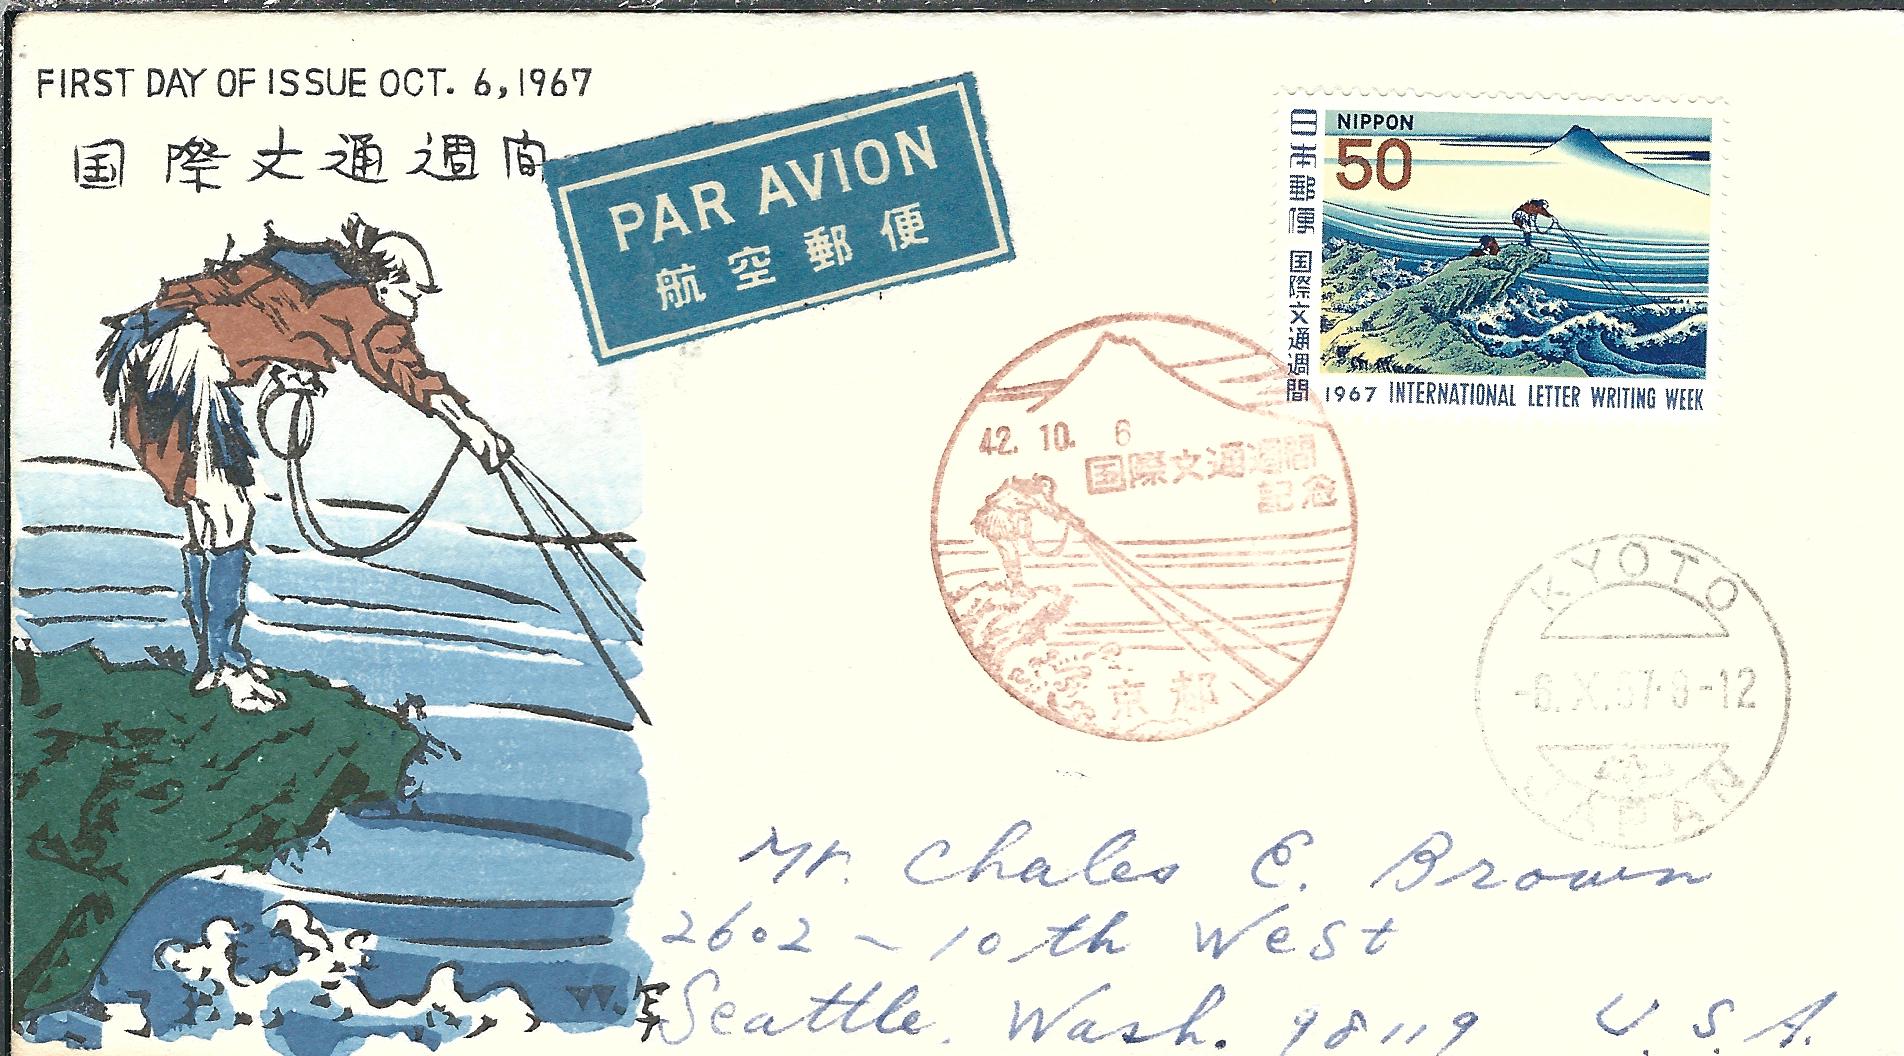 FIRST DAY OF ISSUE OCT. 6, 1967
国際文通週間
PAR AVION
航空郵便
NIPPON
50
日本郵便 国際文通週間
1967 INTERNATIONAL LETTER WRITING WEEK
42. 10. 6
国際文通週間
記念
京都
KYOTO
-6.X.67.8-12
JAPAN
Mr. Chales E. Brown
2602 - 10th West
Seattle, Wash. 98119 U.S.A.